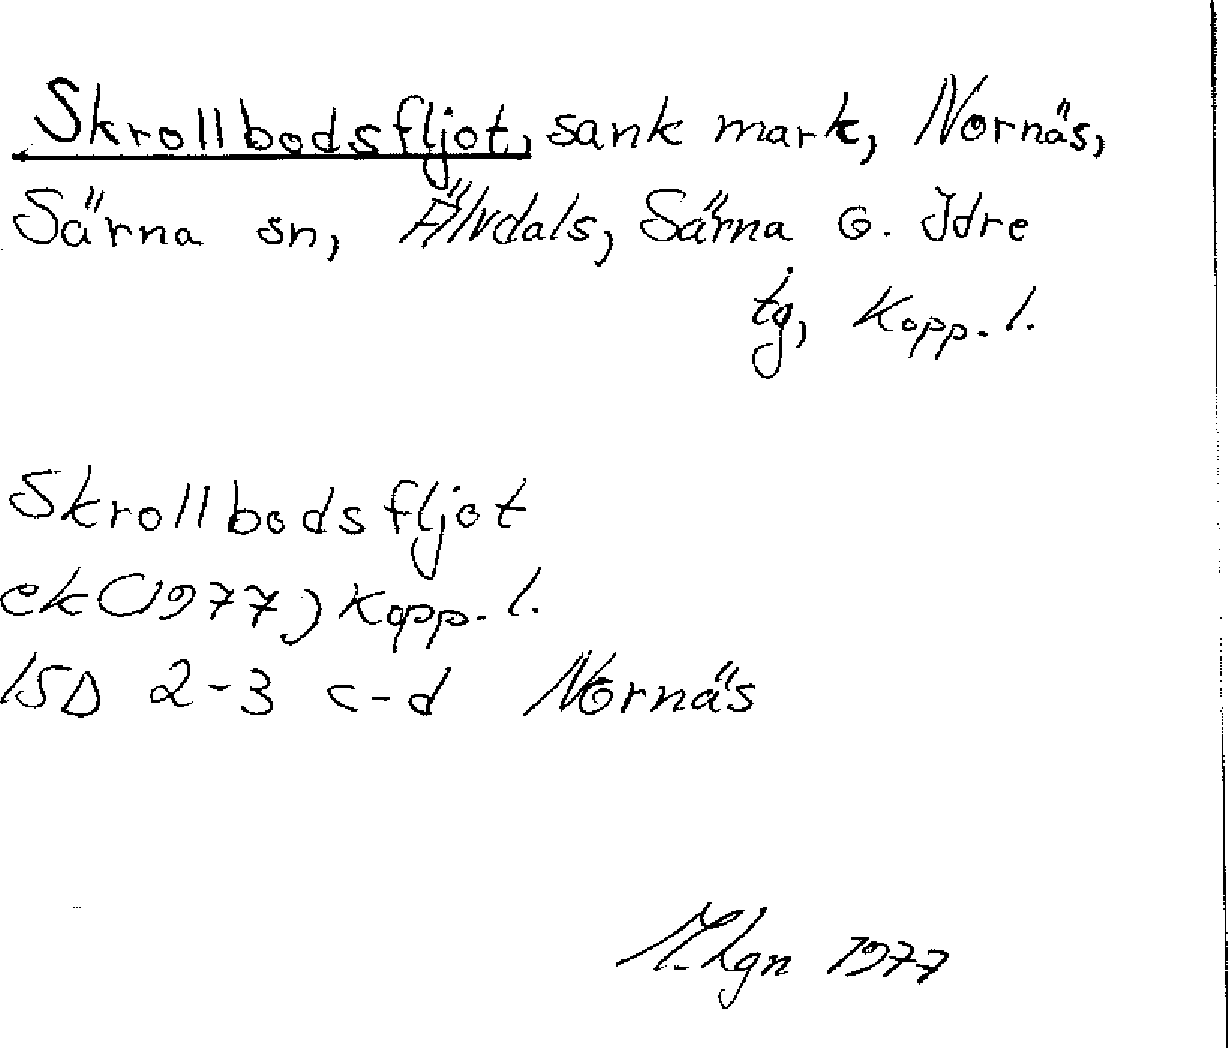 Skrollbodsfljot, sank mark, Nornäs,
Särna sn, Älvdals, Särna o. Idre
tg, Kopp. l.
Skrollbodsfljot
ek (1977) Kopp. l.
15D 2-3 c-d Nornäs
1977